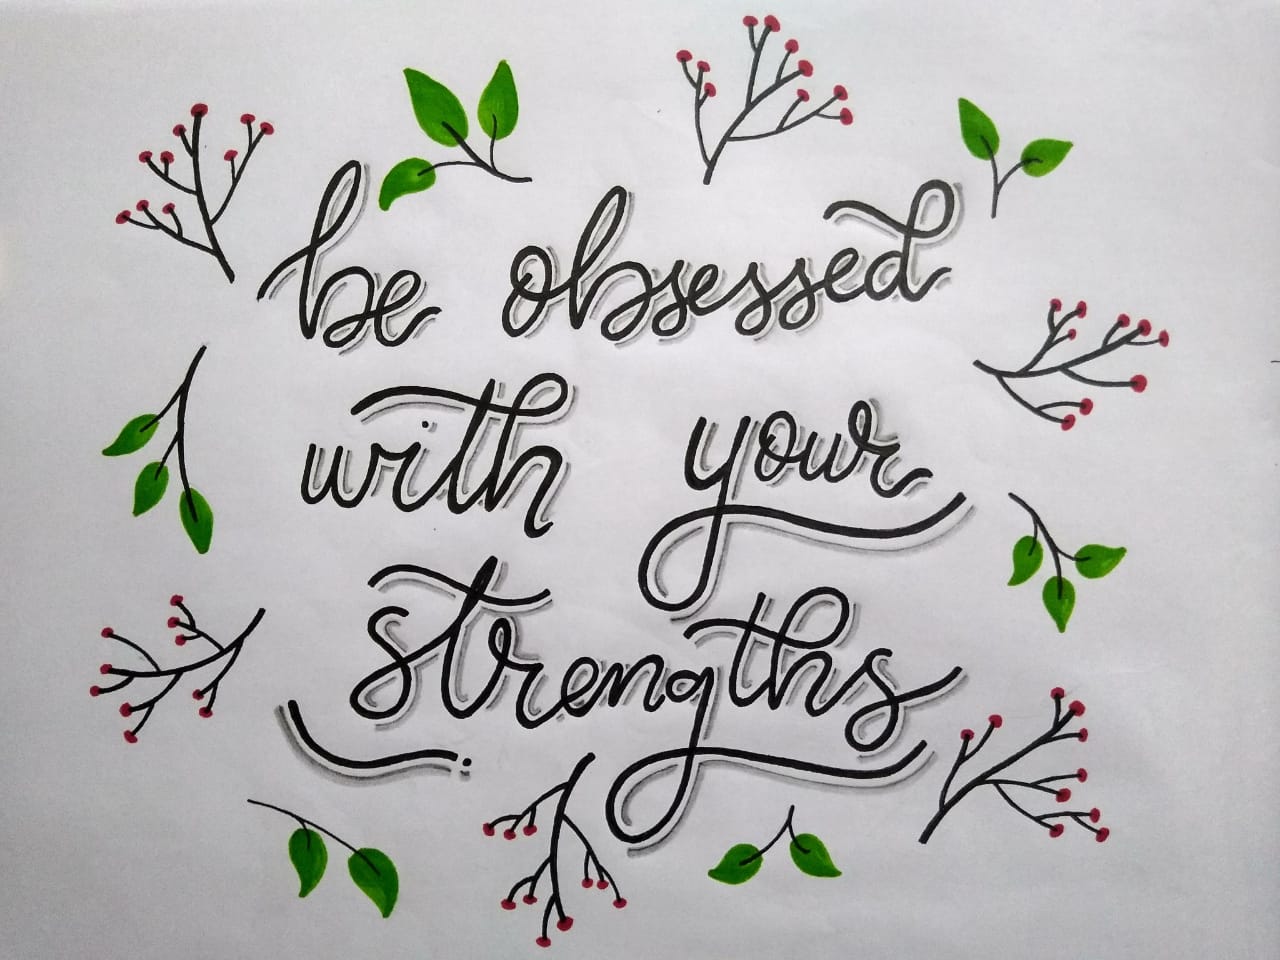 be obsessed
with your
strengths